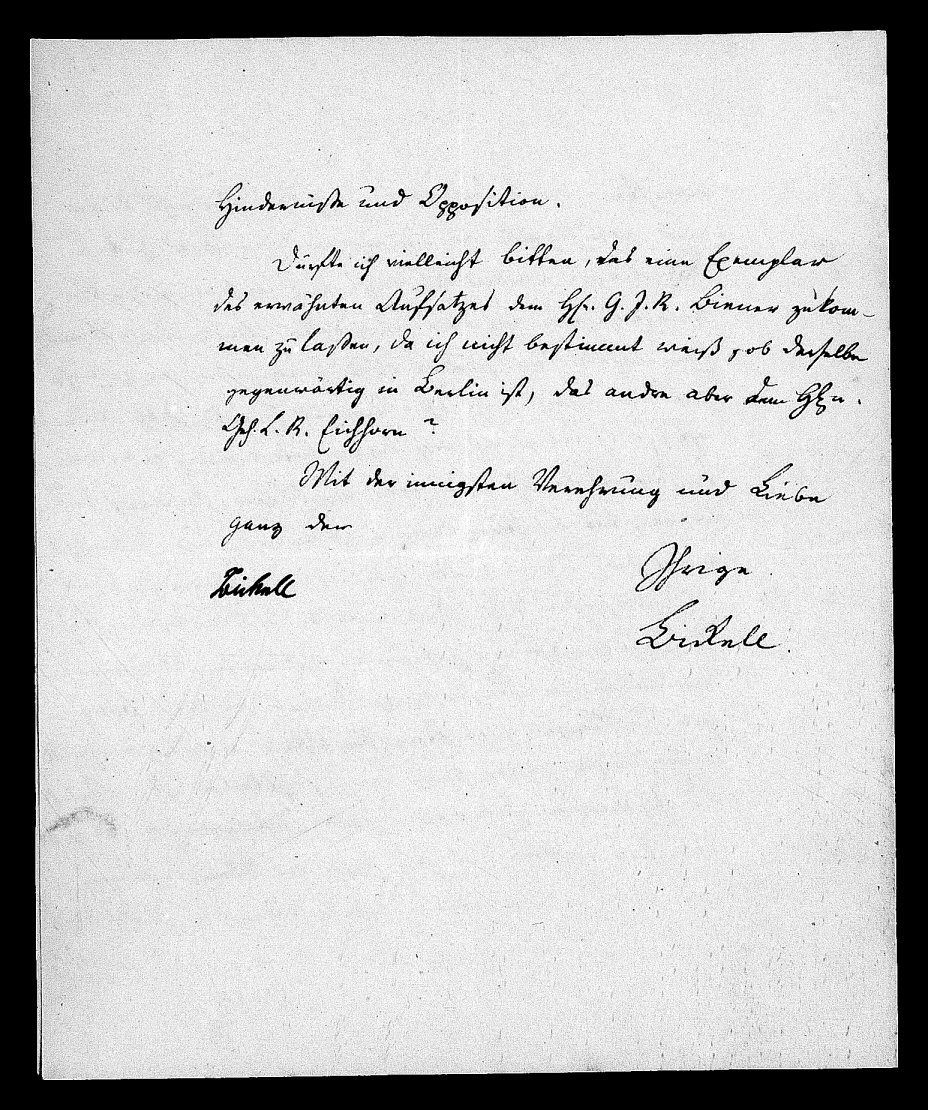 Hindernisse und Opposition.
Dürfte ich vielleicht bitten, das eine Exemplar
des erwähnten Aufsatzes dem Hn. G. J. R. Biener zukom-
men zu laßen, da ich nicht bestimmt weiß, ob derselbe
gegenwärtig in Berlin ist, das andre aber dem Hn.
Geh. L. R. Eichhorn?
Mit der innigsten Verehrung und Liebe
ganz der
Ihrige
Bickell
Bickell.